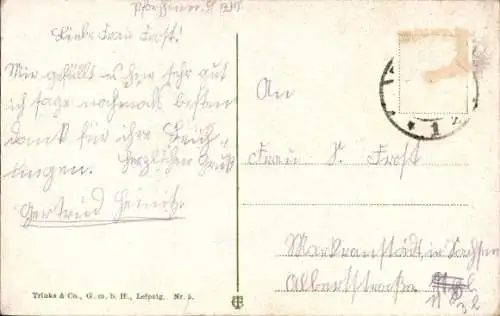 Liebe Frau Frost!
Mir gefällt es hier sehr gut
ich sage nochmals besten
dank für ihre
Herzlichen Gruß
Gertrud
An
Frau S. Frost
Markranstädt in Sachsen
Albertstraße
1
Trinks & Co., G. m. b. H., Leipzig. Nr. 5.